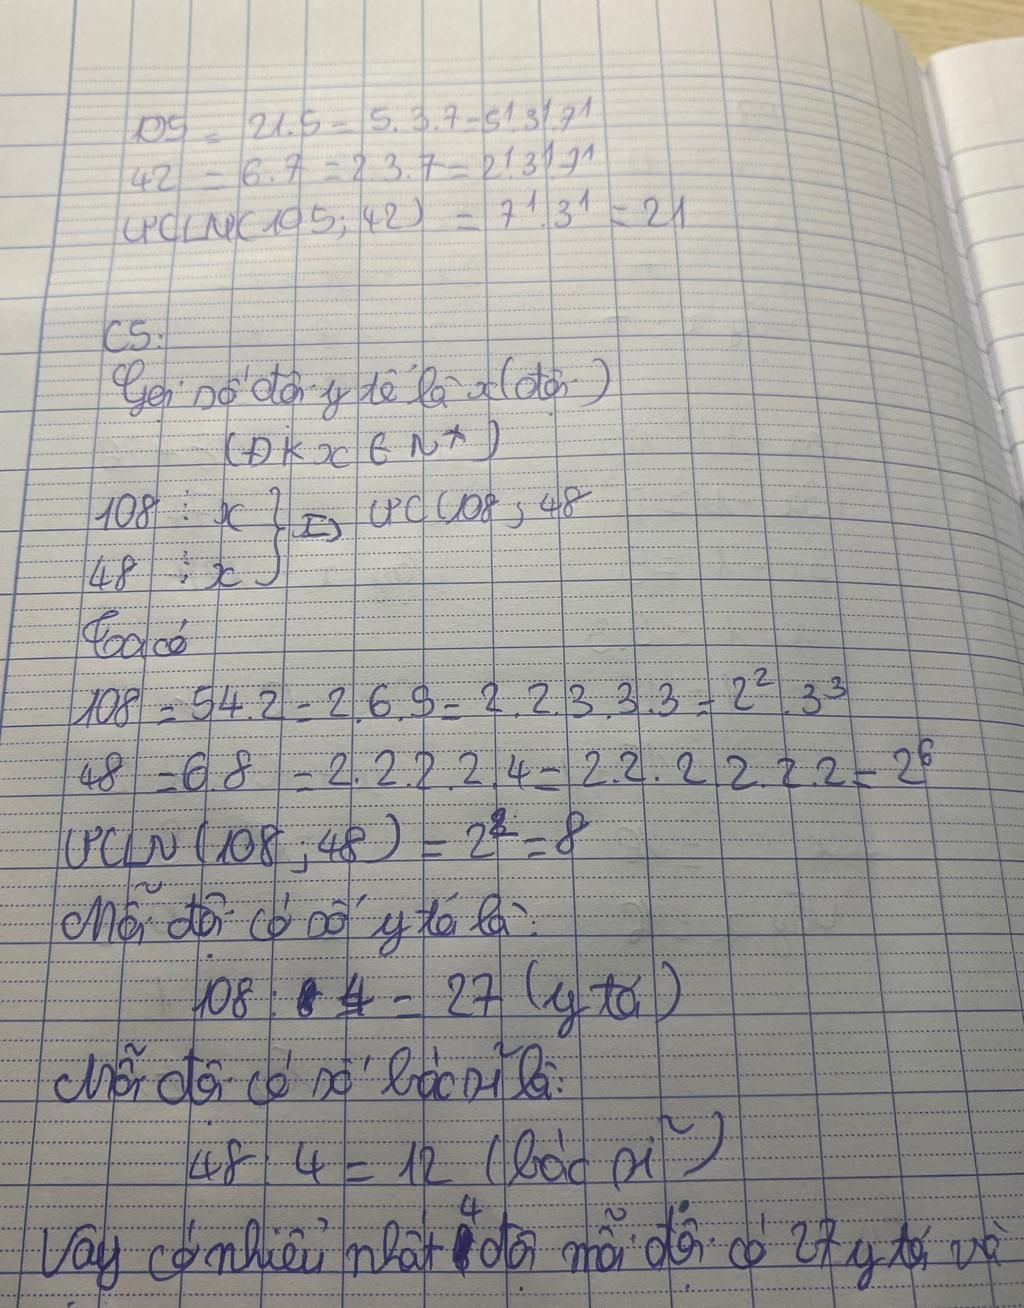 105 = 21.5 = 5.3.7 = 5¹.3¹.7¹
42 = 6.7 = 2.3.7 = 2¹.3¹.7¹
ƯCLN(105; 42) = 7¹.3¹ = 21
C5:
Gọi số đội y tế là x (đội)
(ĐK x ∈ N*)
108 ⋮ x } => ƯC(108; 48
48 ⋮ x
Ta có
108 = 54.2 = 2.6.9 = 2.2.3.3.3 = 2².3³
48 = 6.8 = 2.2.2.2.4 = 2.2.2.2.2.2 = 2⁶
ƯCLN(108; 48) = 2² = 8
Mỗi đội có số y tá là:
108 : 4 = 27 (y tá)
Mỗi đội có số bác sĩ là:
48 : 4 = 12 (bác sĩ)
Vậy có nhiều nhất 4 đội mỗi đội có 27 y tá và